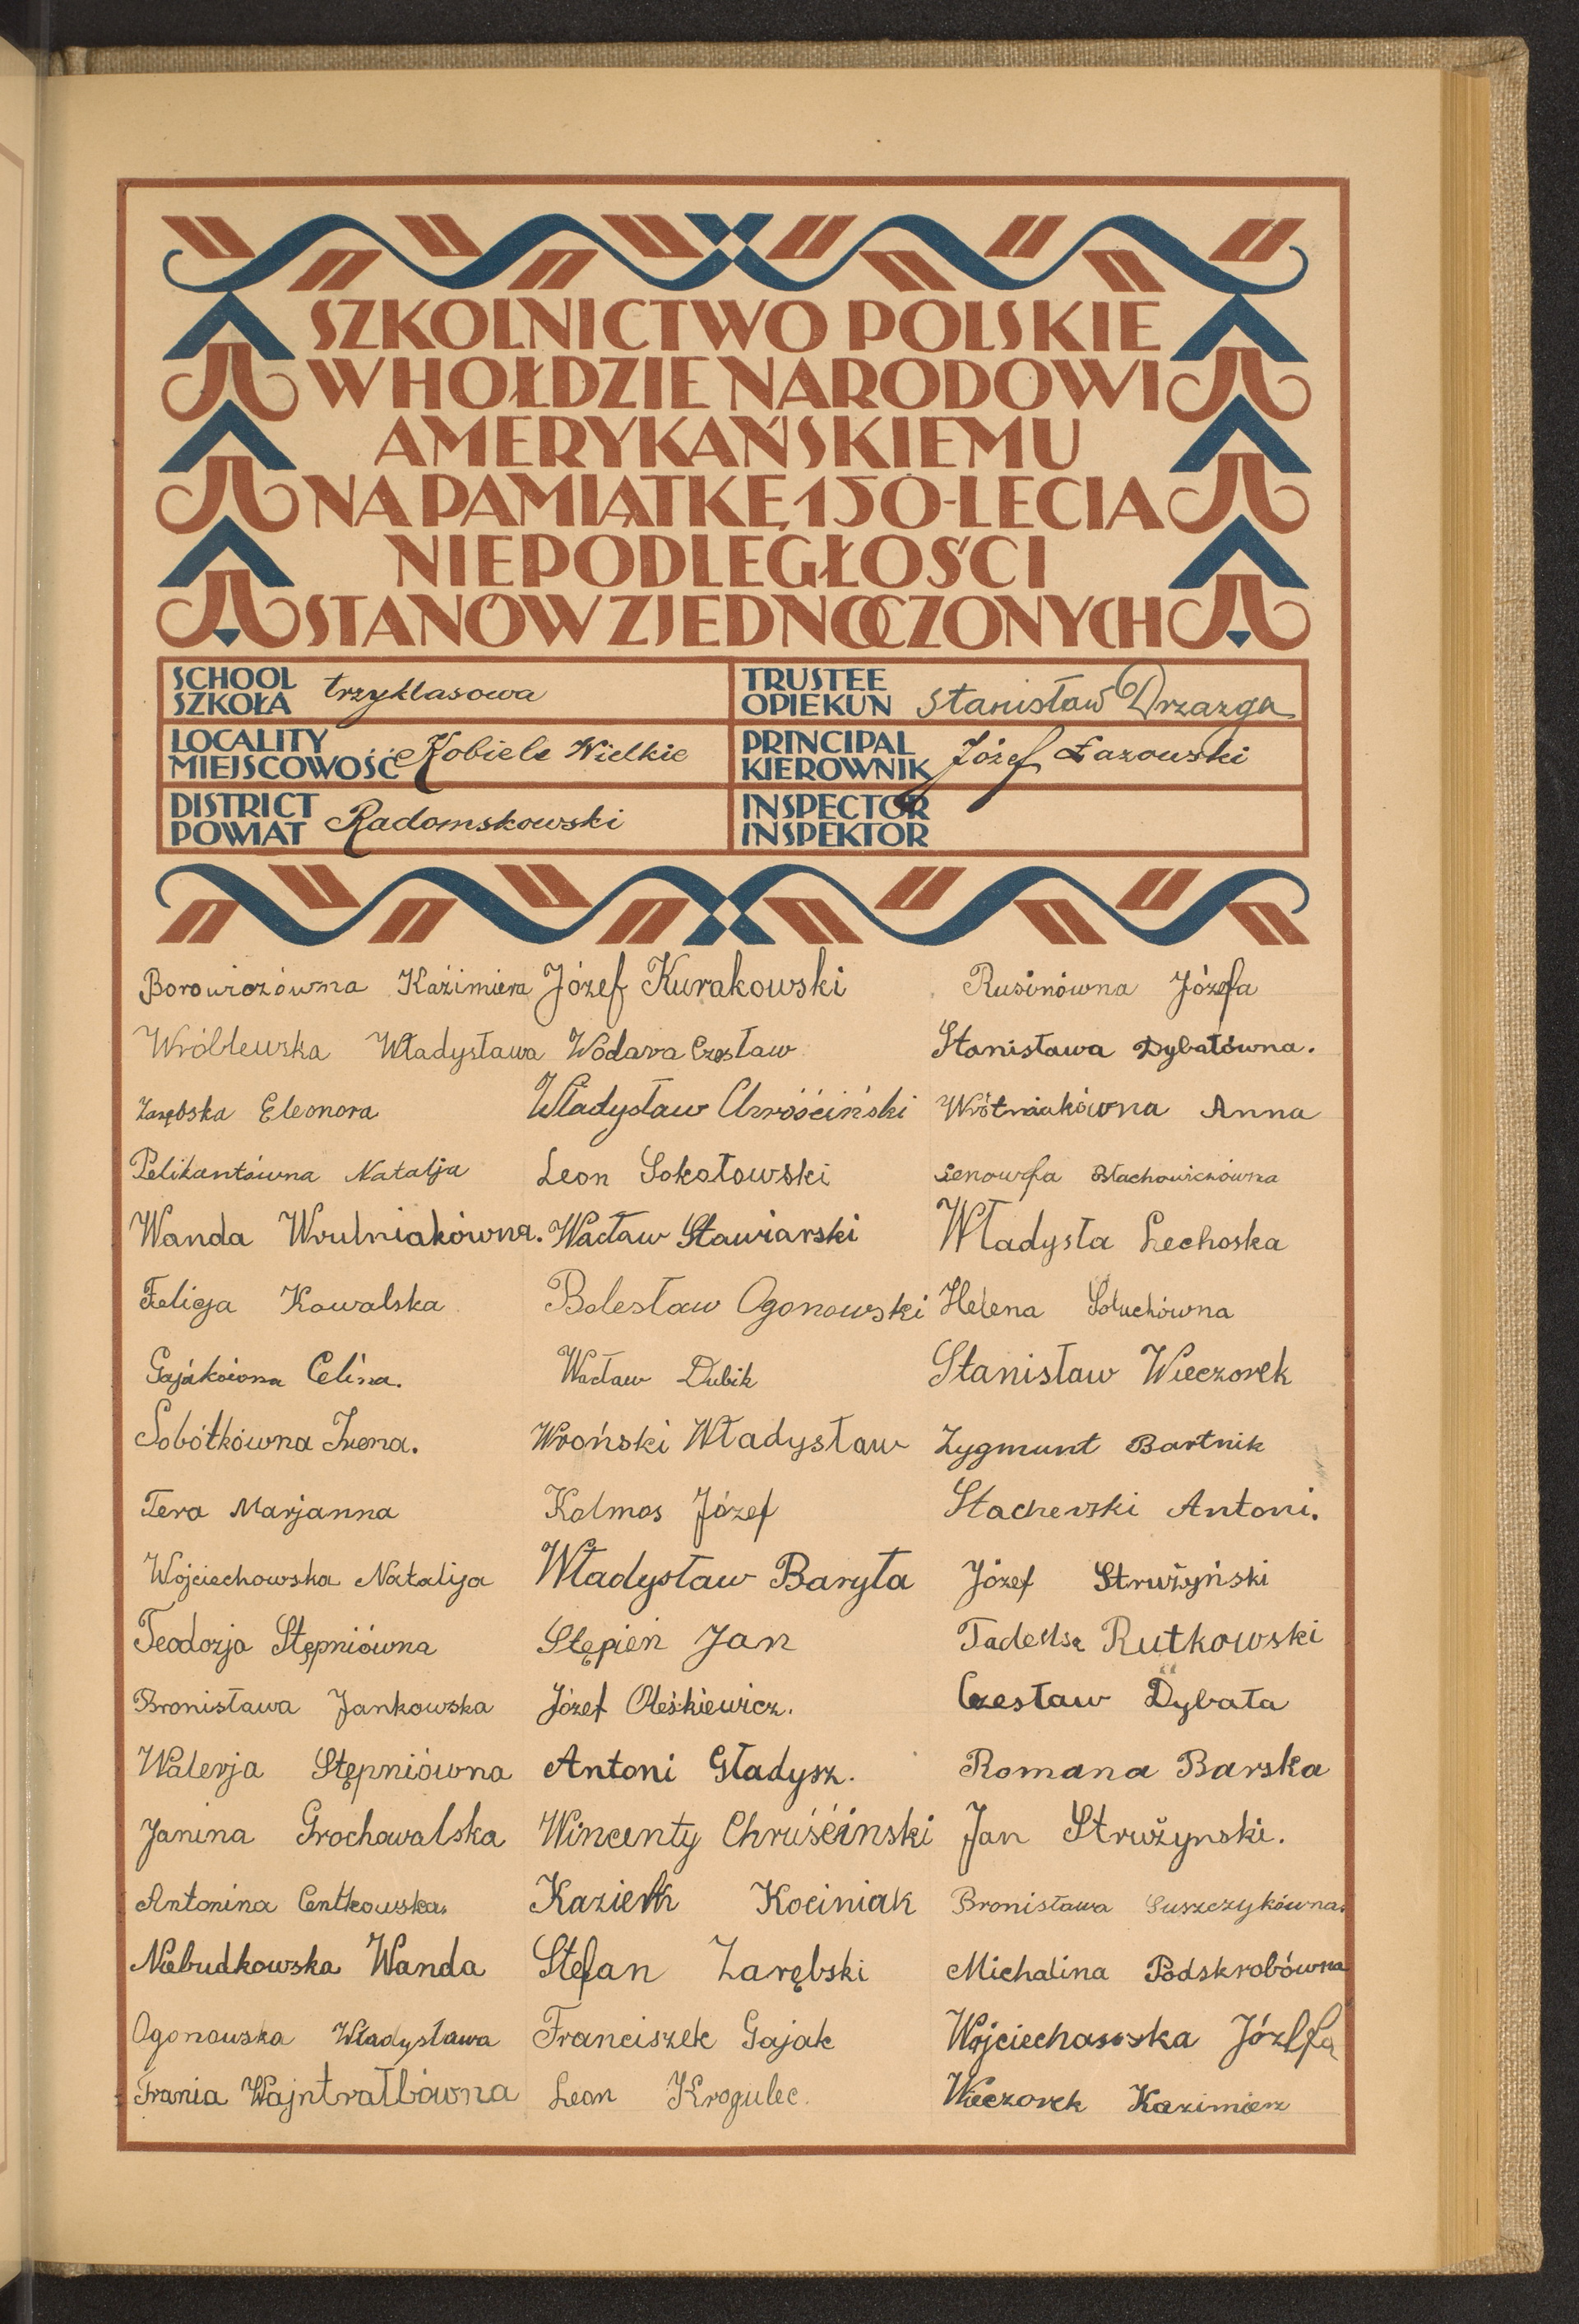 SZKOLNICTWO POLSKIE
W HOŁDZIE NARODOWI
AMERYKAŃSKIEMU
NA PAMIĄTKĘ 150-LECIA
NIEPODLEGŁOŚCI
STANÓW ZJEDNOCZONYCH
SCHOOL
SZKOŁA trzyklasowa
TRUSTEE
OPIEKUN Stanisław Drzazga
LOCALITY
MIEJSCOWOŚĆ Kobiele Wielkie
PRINCIPAL
KIEROWNIK Józef Łazowski
DISTRICT
POWIAT Radomskowski
INSPECTOR
INSPEKTOR
Borowiczówna Kaźimiera
Wróblewska Władysława
Zarębska Eleonora
Pelikantówna Natalja
Wanda Wrulniakówna.
Felicja Kowalska
Gajákówna Celina.
Sobótkówna Irena.
Tera Marjanna
Wojciechowska Natalija
Teodozja Stępniówna
Bronisława Jankowska
Walerja Stępniówna
Janina Grochowalska
Antonina Centkowska.
Niebudkowska Wanda
Ogonowska Władysława
Frania Wajntrałbówna
Józef Kurakowski
Wodara Czesław
Władysław Chróściński
Leon Sokołowski
Wacław Stawiarski
Bolesław Ogonowski
Wacław Dubik
Wroński Władysław
Kolmas Józef
Władysław Baryła
Stępień Jan
Józef Oleśkiewicz.
Antoni Gładysz.
Wincenty Chruśćinski
Kociniak
Stefan Zarębski
Franciszek Gajak
Leon Krogulec.
Rusinówna Józefa
Stanisława Dybałówna.
Wrótniakówna Anna
Błachowiczówna
Władysła Lechoska
Helena Soluchówna
Stanisław Wieczorek
Zygmunt Bartnik
Stacherski Antoni.
Józef Strużyński
Rutkowski
Czesław Dybała
Romana Barska
Jan Strużynski.
Bronisława Suszczykówna.
Michalina Podskrobówna
Wojciechowska Józefa
Wieczorek Kazimierz